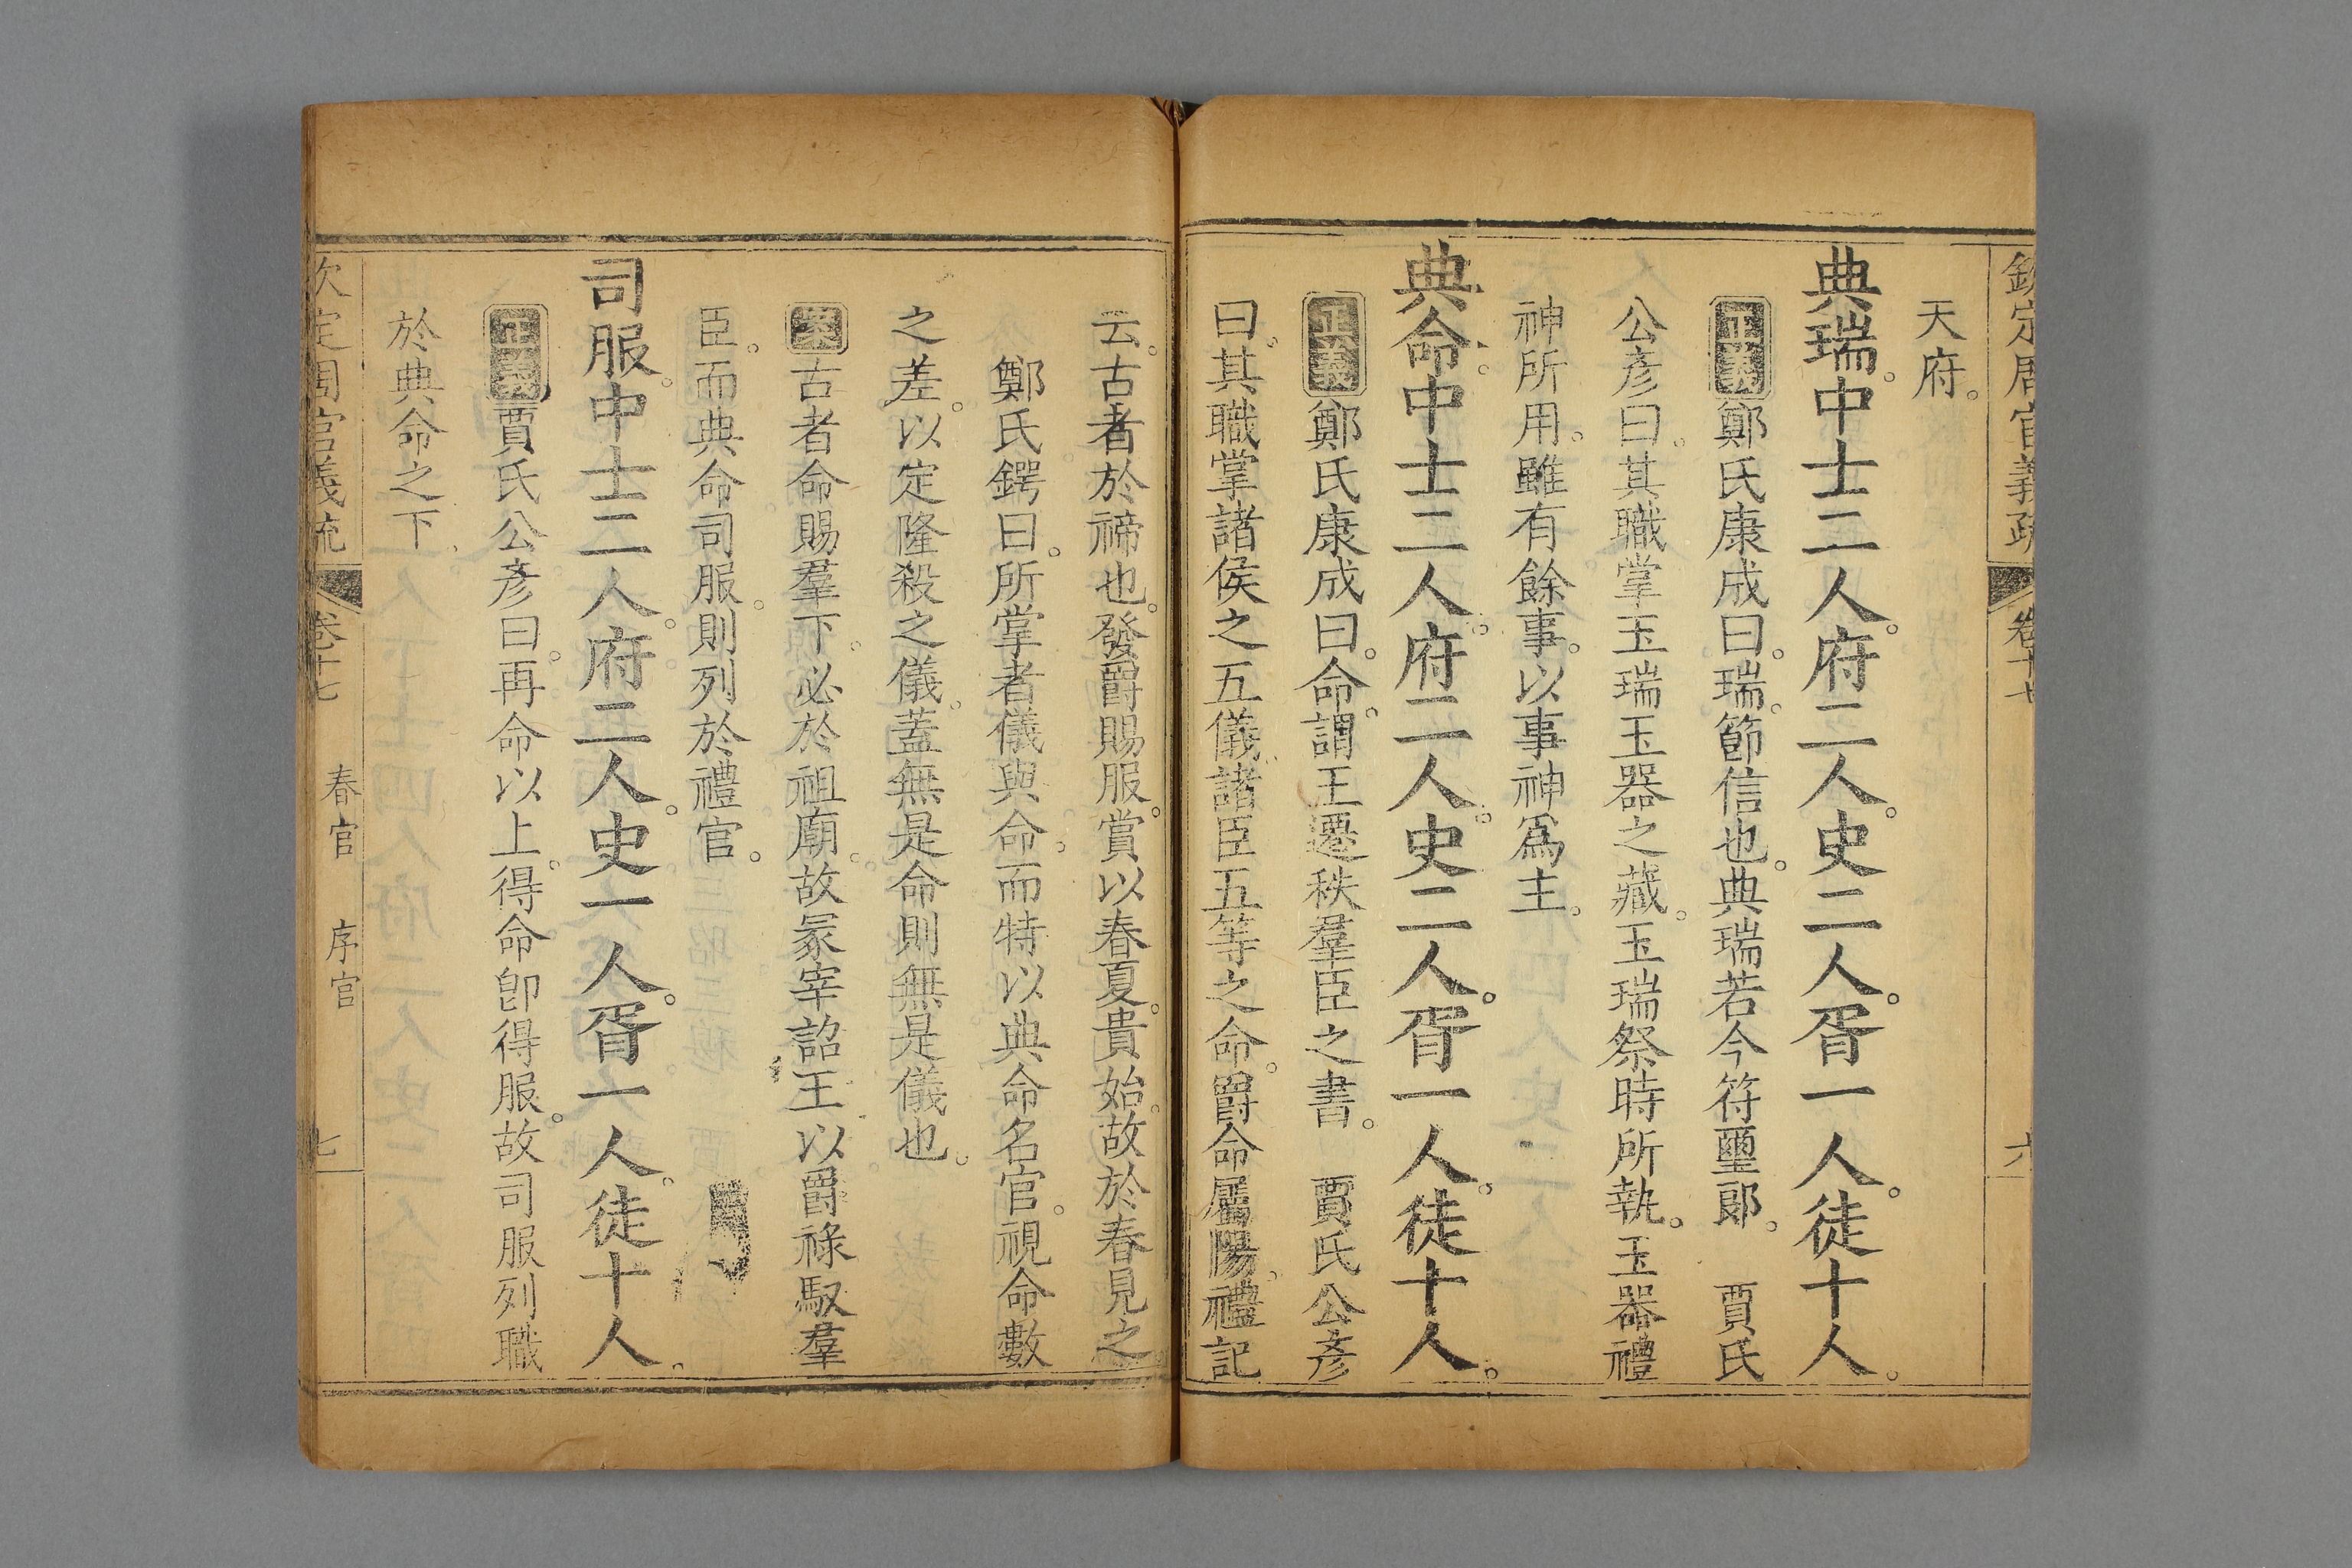 欽定周官義疏 卷十七 六
天府。
典瑞。中士二人。府二人。史二人。胥一人。徒十人。
正義鄭氏康成曰。瑞。節信也。典瑞若今符璽郎。 賈氏
公彥曰。其職掌玉瑞玉器之藏。玉瑞祭時所執。玉器禮
神所用。雖有餘事。以事神爲主。
典命。中士二人。府二人。史二人。胥一人。徒十人。
正義鄭氏康成曰。命。謂王遷秩羣臣之書。 賈氏公彥
曰。其職掌諸侯之五儀諸臣五等之命。爵命屬陽。禮記
云。古者於禘也。發爵賜服。賞以春夏。貴始。故於春見之。
鄭氏鍔曰。所掌者儀與命。而特以典命名官。視命數
之差。以定隆殺之儀。蓋無是命則無是儀也。
案古者命賜羣下。必於祖廟。故冡宰詔王以爵祿馭羣
臣。而典命司服。則列於禮官。
司服。中士二人。府二人。史一人。胥一人。徒十人。
正義賈氏公彥曰。再命以上。得命卽得服。故司服列職
於典命之下。
欽定周官義疏 卷十七 春官 序官 七